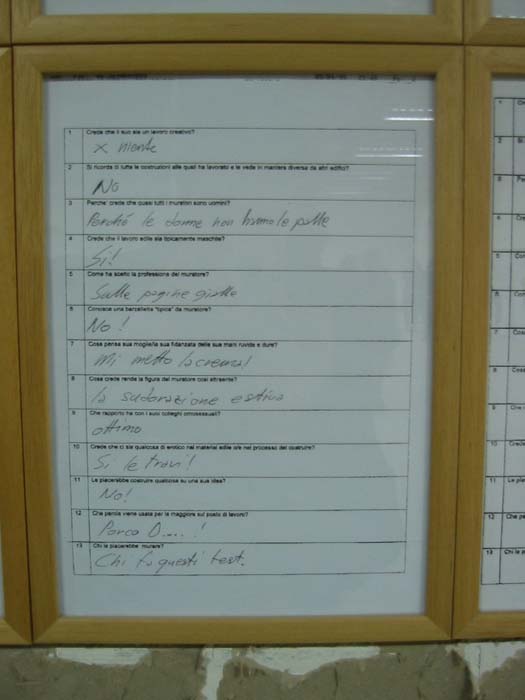 1 Crede che il suo sia un lavoro creativo?
x niente
2 Si ricorda di tutte le costruzioni alle quali ha lavorato e le vede in maniera diversa da altri edifici?
No
3 Perche' crede che quasi tutti i muratori sono uomini?
Perché le donne non hanno le palle
4 Crede che il lavoro edile sia tipicamente maschile?
Si!
5 Come ha scelto la professione del muratore?
Sulle pagine gialle
6 Conosce una barzelletta "tipica" da muratore?
No!
7 Cosa pensa sua moglie/la sua fidanzata delle sue mani ruvide e dure?
Mi metto la crema!
8 Cosa crede renda la figura del muratore così attraente?
la sudorazione estiva
9 Che rapporto ha con i suoi colleghi omosessuali?
ottimo
10 Crede che ci sia qualcosa di erotico nei materiali edile o/e nel processo del costruire?
Si le travi!
11 Le piacerebbe costruire qualcosa su una sua idea?
No!
12 Che parola viene usata per la maggiore sul posto di lavoro?
Porco D....!
13 Chi le piacerebbe murare?
Chi fa questi test.
1
2 Si
3 Pe
4
5
6
7
8
9 Che
10
11 Le pia
12 Che pa
13 Chi le